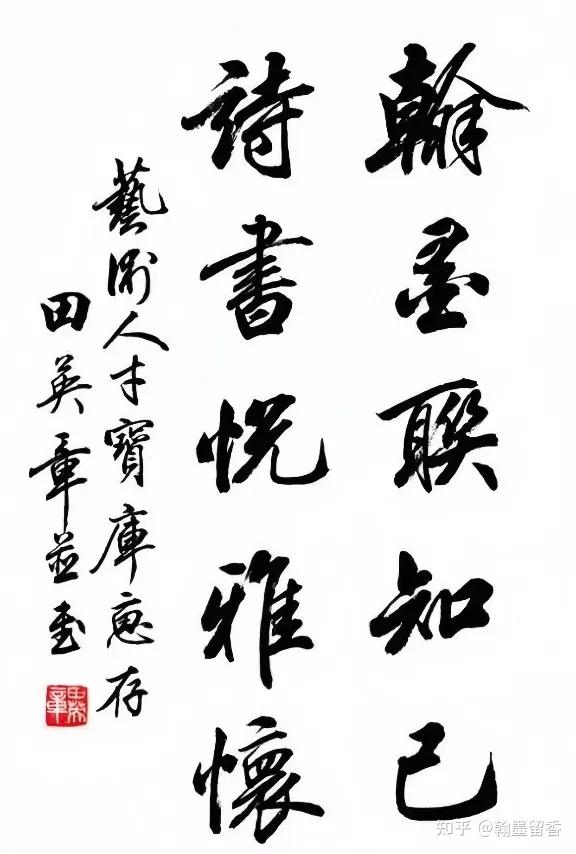 翰墨聯知己
詩書悦雅懷
藝術人才寶庫惠存
田英章並書
知乎 @翰墨留香